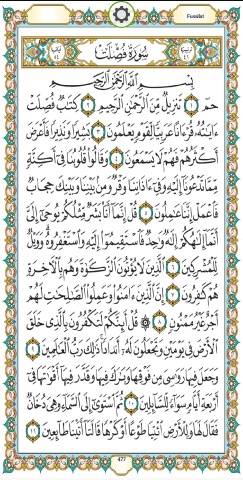 Fussilat
سُورَةُ فُصِّلَتْ
بِسْمِ اللَّهِ الرَّحْمَٰنِ الرَّحِيمِ
حمٓ ١ تَنزِيلٌ مِّنَ الرَّحْمَٰنِ الرَّحِيمِ ٢ كِتَابٌ فُصِّلَتْ
ءَايَاتُهُ قُرْءَانًا عَرَبِيًّا لِّقَوْمٍ يَعْلَمُونَ ٣ بَشِيرًا وَنَذِيرًا فَأَعْرَضَ
أَكْثَرُهُمْ فَهُمْ لَا يَسْمَعُونَ ٤ وَقَالُوا قُلُوبُنَا فِي أَكِنَّةٍ
مِّمَّا تَدْعُونَا إِلَيْهِ وَفِي ءَاذَانِنَا وَقْرٌ وَمِن بَيْنِنَا وَبَيْنِكَ حِجَابٌ
فَاعْمَلْ إِنَّنَا عَامِلُونَ ٥ قُلْ إِنَّمَا أَنَا بَشَرٌ مِّثْلُكُمْ يُوحَىٰ إِلَيَّ
أَنَّمَا إِلَٰهُكُمْ إِلَٰهٌ وَاحِدٌ فَاسْتَقِيمُوا إِلَيْهِ وَاسْتَغْفِرُوهُ وَوَيْلٌ
لِّلْمُشْرِكِينَ ٦ الَّذِينَ لَا يُؤْتُونَ الزَّكَوٰةَ وَهُم بِالْءَاخِرَةِ
هُمْ كَافِرُونَ ٧ إِنَّ الَّذِينَ ءَامَنُوا وَعَمِلُوا الصَّالِحَاتِ لَهُمْ
أَجْرٌ غَيْرُ مَمْنُونٍ ٨ ۞ قُلْ أَئِنَّكُمْ لَتَكْفُرُونَ بِالَّذِي خَلَقَ
الْأَرْضَ فِي يَوْمَيْنِ وَتَجْعَلُونَ لَهُ أَندَادًا ذَٰلِكَ رَبُّ الْعَالَمِينَ ٩
وَجَعَلَ فِيهَا رَوَاسِيَ مِن فَوْقِهَا وَبَارَكَ فِيهَا وَقَدَّرَ فِيهَا أَقْوَاتَهَا فِي
أَرْبَعَةِ أَيَّامٍ سَوَاءً لِّلسَّائِلِينَ ١٠ ثُمَّ اسْتَوَىٰ إِلَى السَّمَاءِ وَهِيَ دُخَانٌ
فَقَالَ لَهَا وَلِلْأَرْضِ ائْتِيَا طَوْعًا أَوْ كَرْهًا قَالَتَا أَتَيْنَا طَائِعِينَ ١١
477